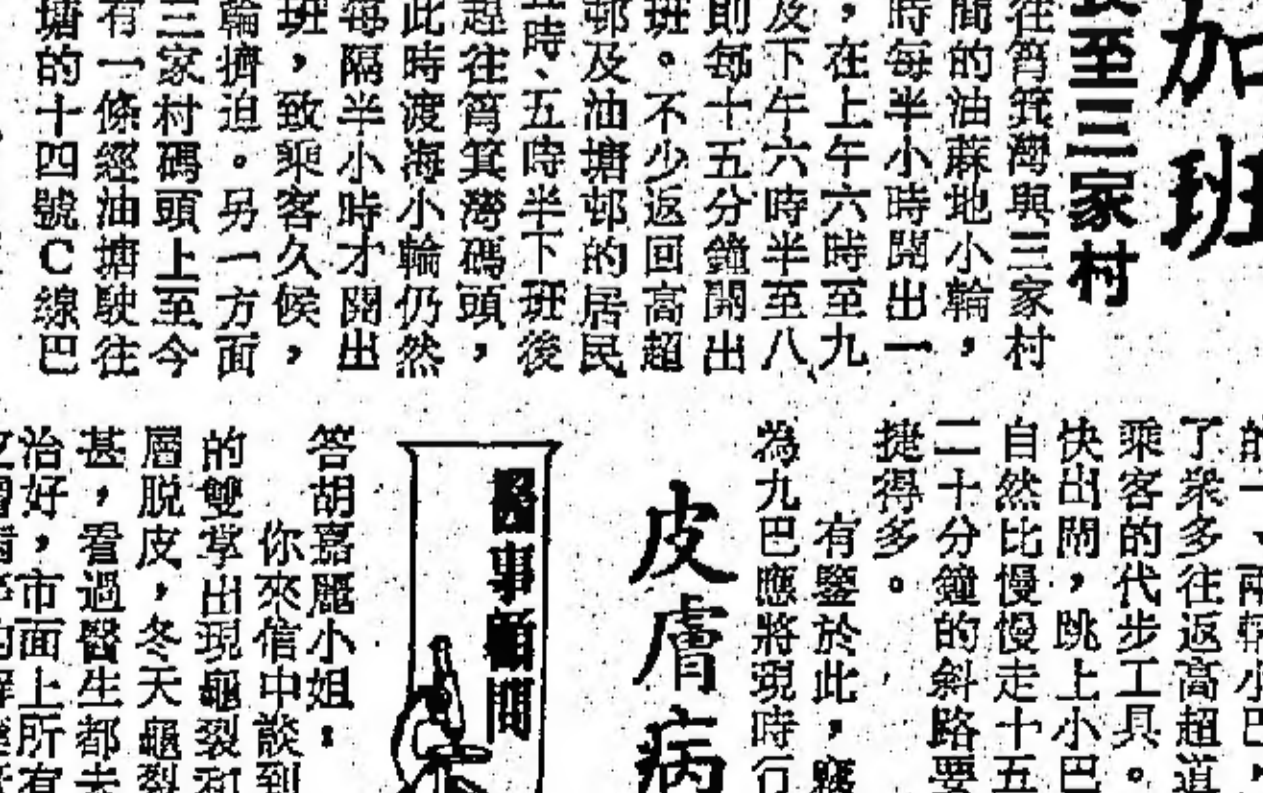 加班
至三家村
往筲箕灣與三家村
間的油蔴地小輪，
時每半小時開出一
，在上午六時至九
及下午六時半至八
則每十五分鐘開出
班。不少返回高超
邨及油塘邨的居民
時、五時半下班後
趕往筲箕灣碼頭，
此時渡海小輪仍然
每隔半小時才開出
班，致乘客久候，
輪擠迫。另一方面
三家村碼頭上至今
有一條經油塘駛往
塘的十四號C線巴
的一、兩輛小巴，
了衆多往返高超道
乘客的代步工具。
快出閘，跳上小巴
自然比慢慢走十五
二十分鐘的斜路要
捷得多。
有鑒於此，竊
為九巴應將現時行
皮膚病
醫事顧問
答胡嘉麗小姐：
你來信中談到
的雙掌出現龜裂和
層脫皮，冬天龜裂
甚，看過醫生都未
治好，市面上所有